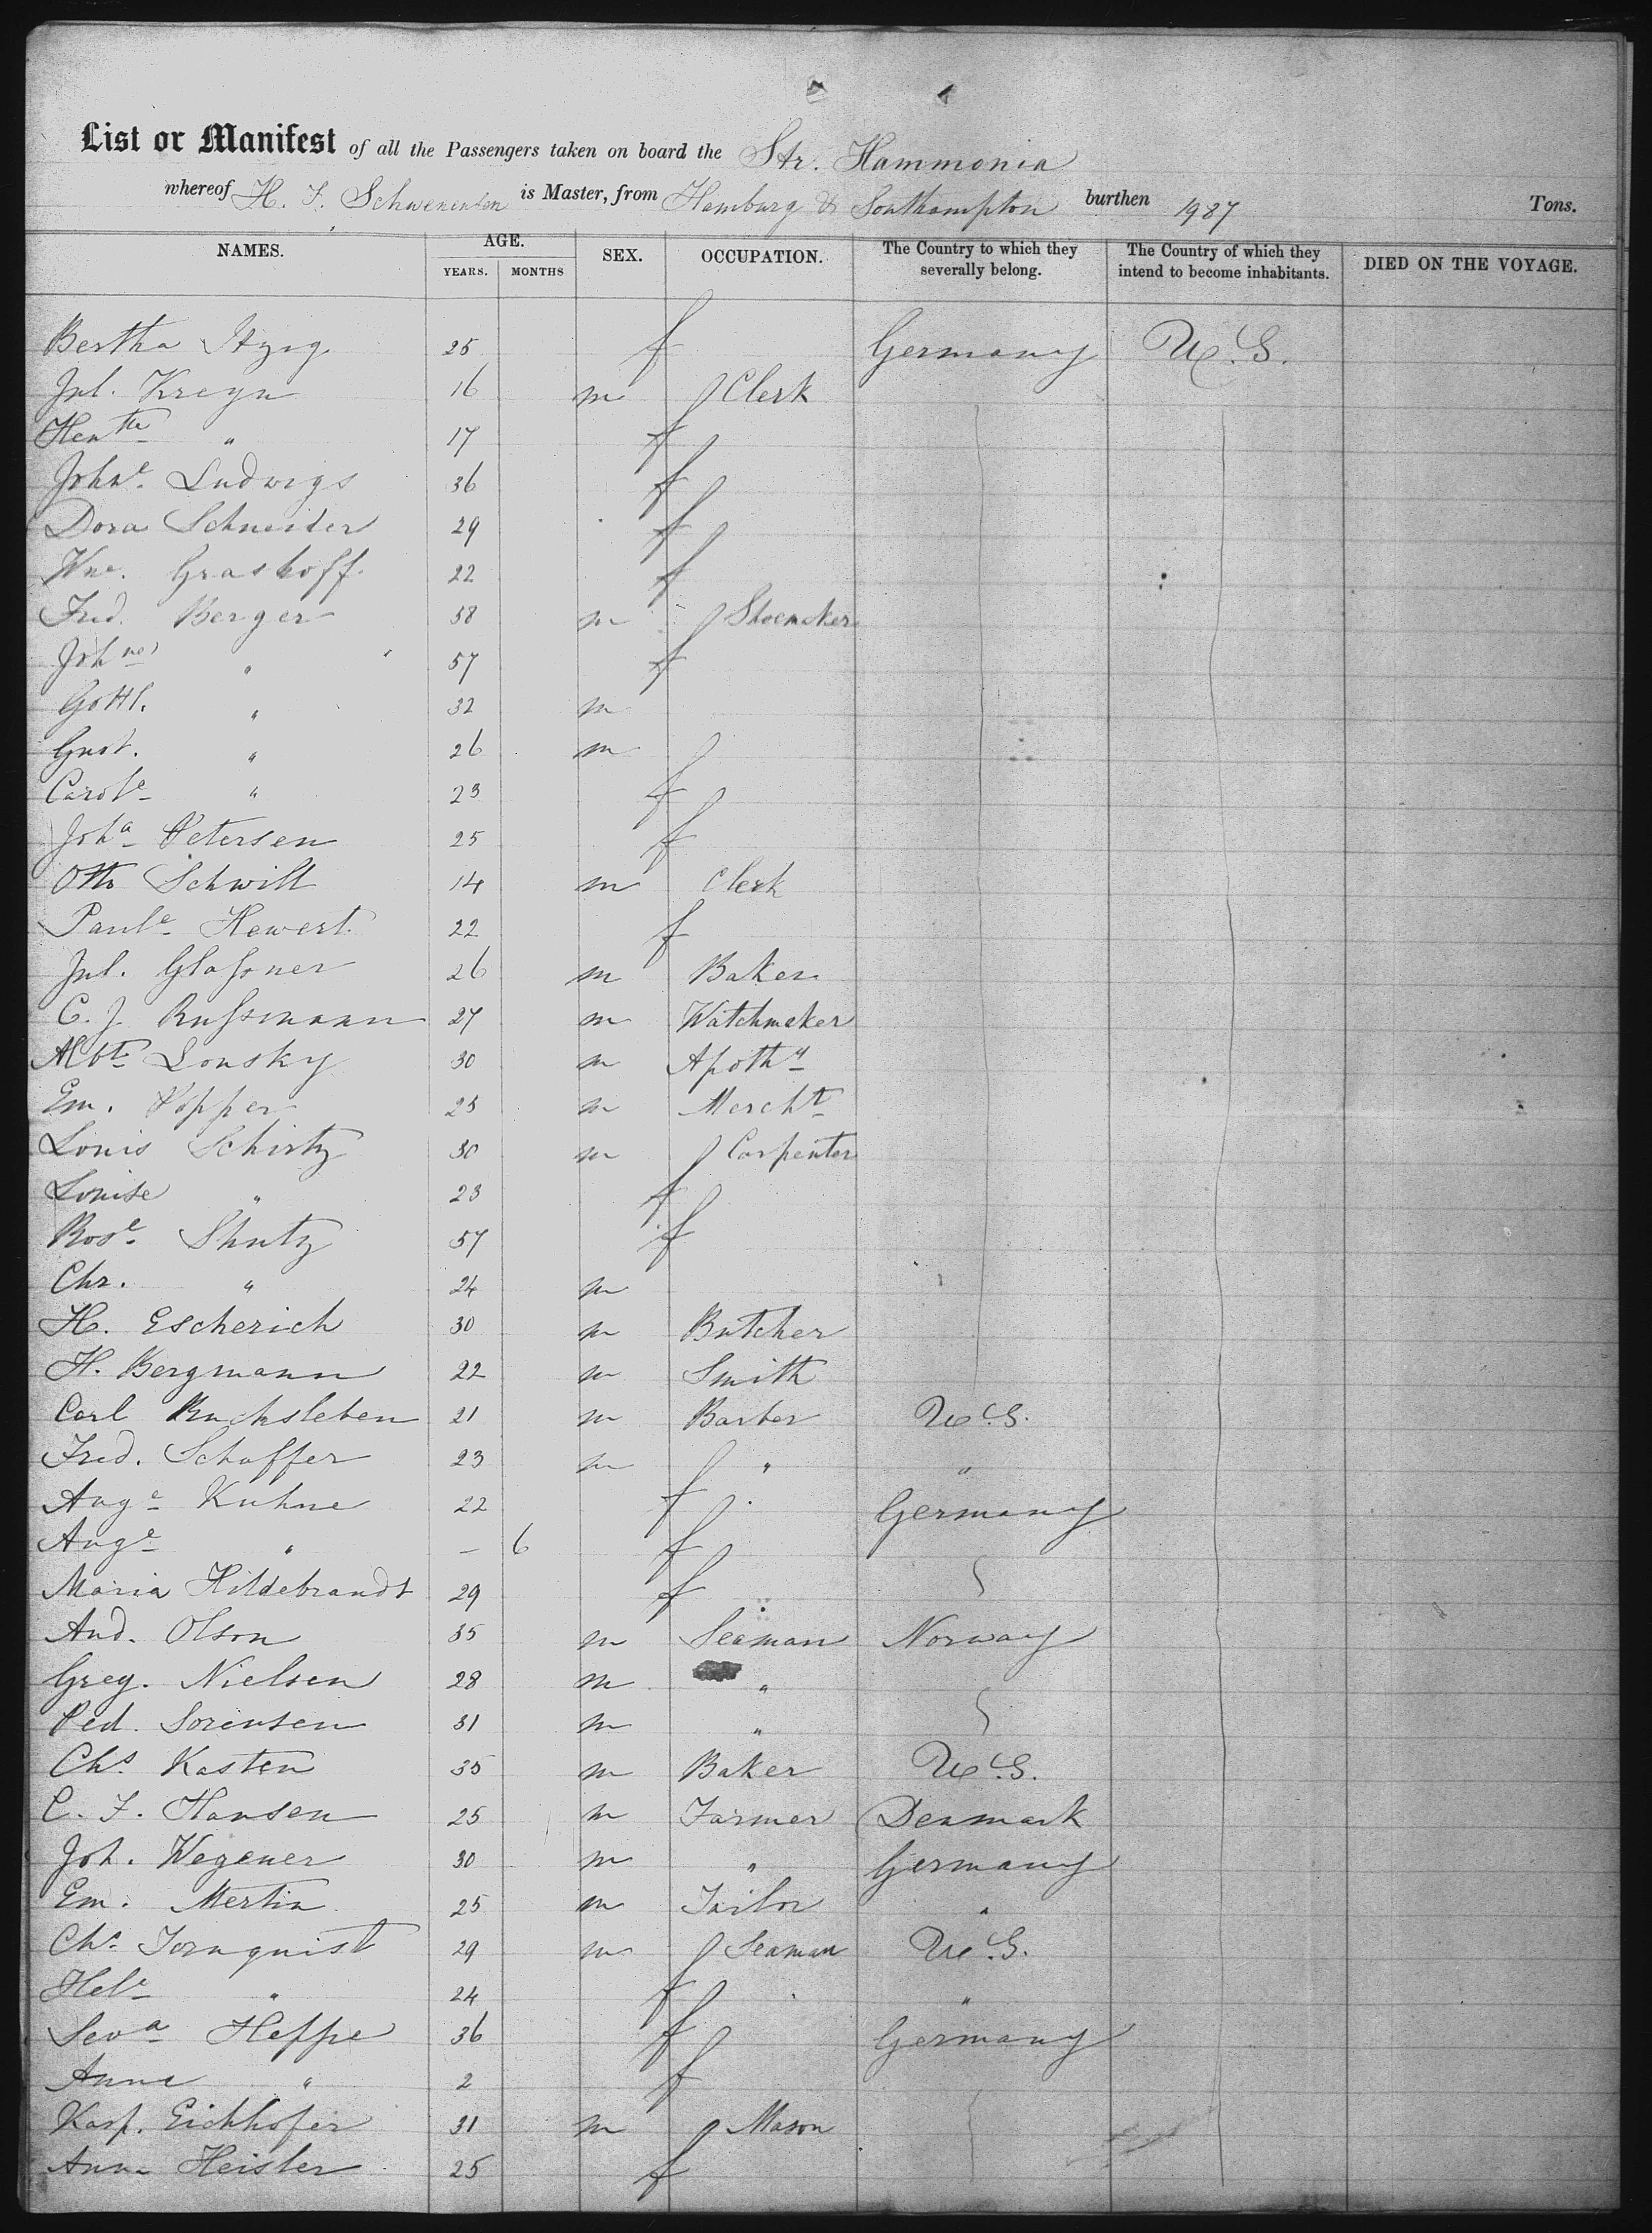 List or Manifest of all the Passengers taken on board the Str. Hammonia
whereof H. F. Schwenensen is Master, from Hamburg & Southampton burthen 1987 Tons.
NAMES. AGE. YEARS. MONTHS SEX. OCCUPATION. The Country to which they severally belong. The Country of which they intend to become inhabitants. DIED ON THE VOYAGE.
Bertha Itzig 25 f Germany U.S.
Jul. Kreyn 16 m Clerk
Hentte " 17 f
Johne Ludwigs 36 f
Dora Schneider 29 f
Wne. Grashoff. 22 f
Fred. Berger 58 m Shoemaker
Johne " 57 f
Gottl. " 32 m
Gust. " 26 m
Carole " 23 f
Joha Petersen 25 f
Otto Schwill 14 m Clerk
Paule Hewert 22 f
Jul. Glassner 26 m Baker
C. J. Russmann 27 m Watchmaker
Albt Lonsky 30 m Apothy
Em. Popper 25 m Mercht
Louis Schirtz 30 m Carpenter
Louise " 23 f
Rose Shutz 57 f
Chr. " 24 m
H. Escherich 30 m Butcher
H. Bergmann 22 m Smith
Carl Buchsleben 21 m Barber U.S.
Fred. Schaffer 23 m " "
Auge Kuhne 22 f Germany
Auge " – 6 f
Maria Hildebrandt 29 f
And. Olson 35 m Seaman Norway
Greg. Nielsen 28 m "
Ped. Sorensen 31 m "
Chs. Kasten 35 m Baker U.S.
C. F. Hansen 25 m Farmer Denmark
Joh. Wegener 30 m " Germany
Em. Mertin 25 m Tailor "
Chs. Tornquist 29 m Seaman U.S.
Hele " 24 f "
Seva Heppe 36 f Germany
Anna " 2 f
Kasp. Eichhofer 31 m Mason
Anna Heisler 25 f